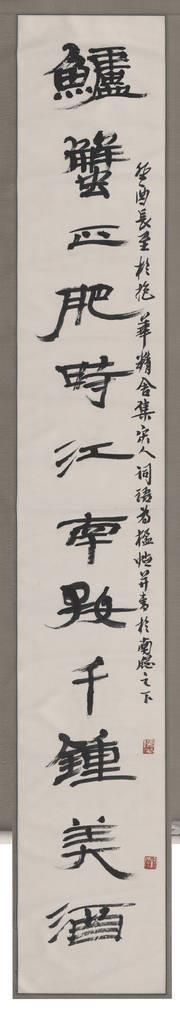 鱸蟹正肥時江南數千鍾美酒
癸酉長至於抱華精舍集宋人詞語為楹帖并書於南窗之下